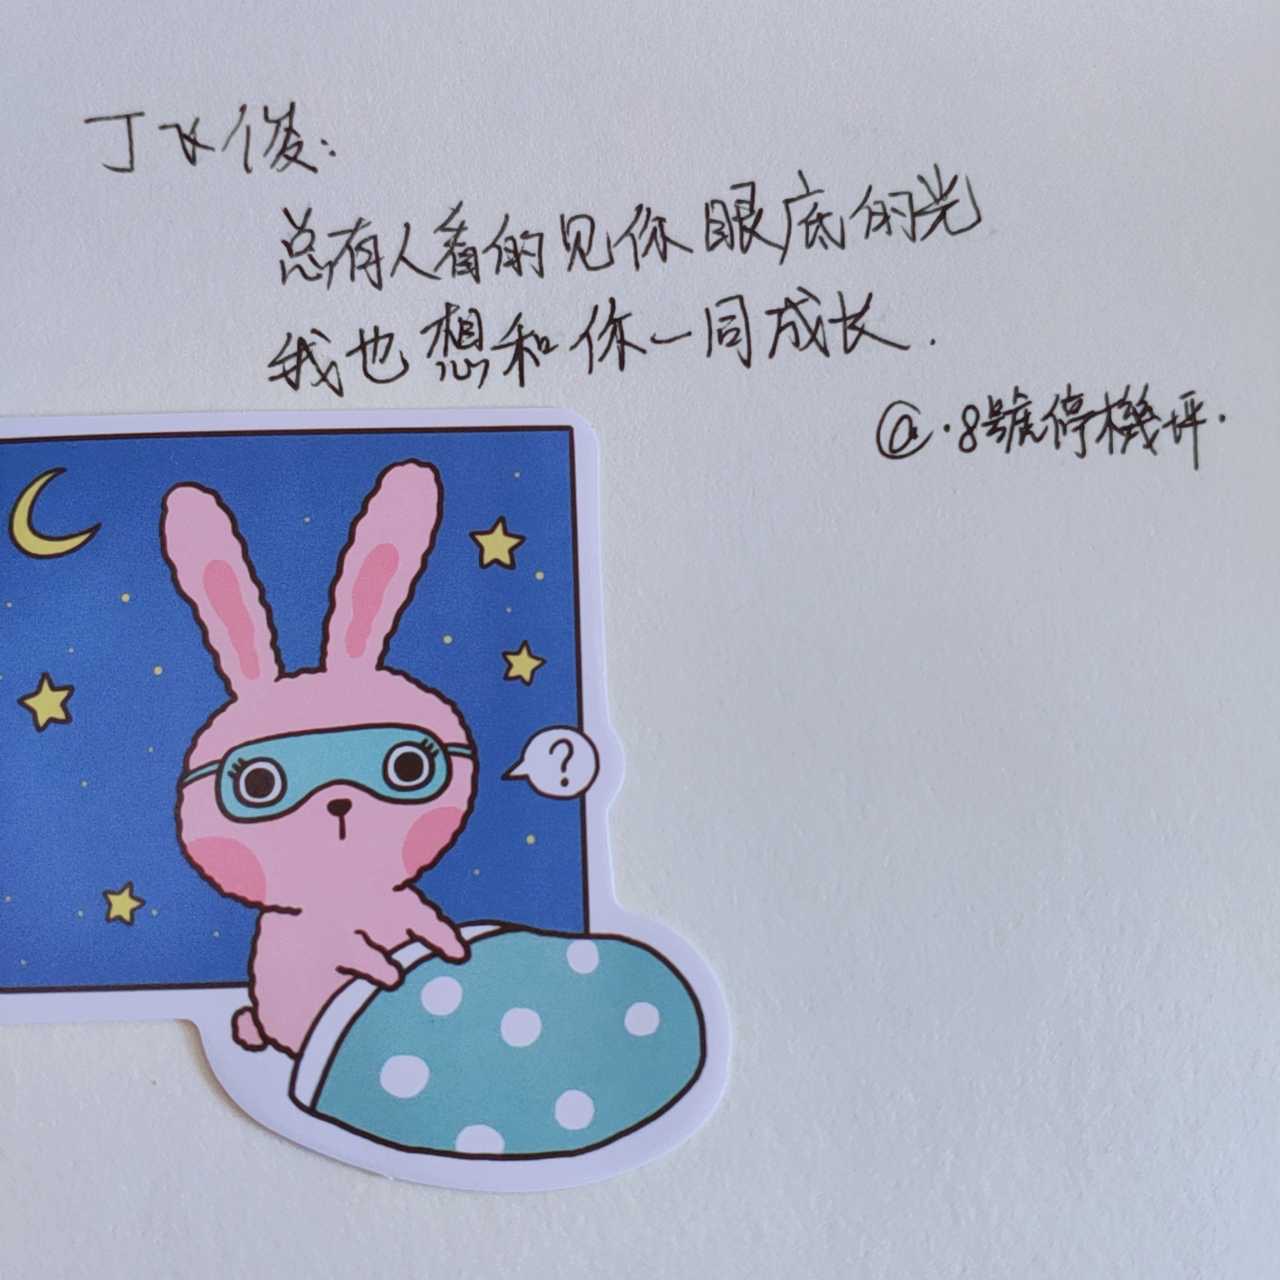 丁飞俊:
总有人看的见你眼底的光
我也想和你一同成长.
@.8號停機坪.
?